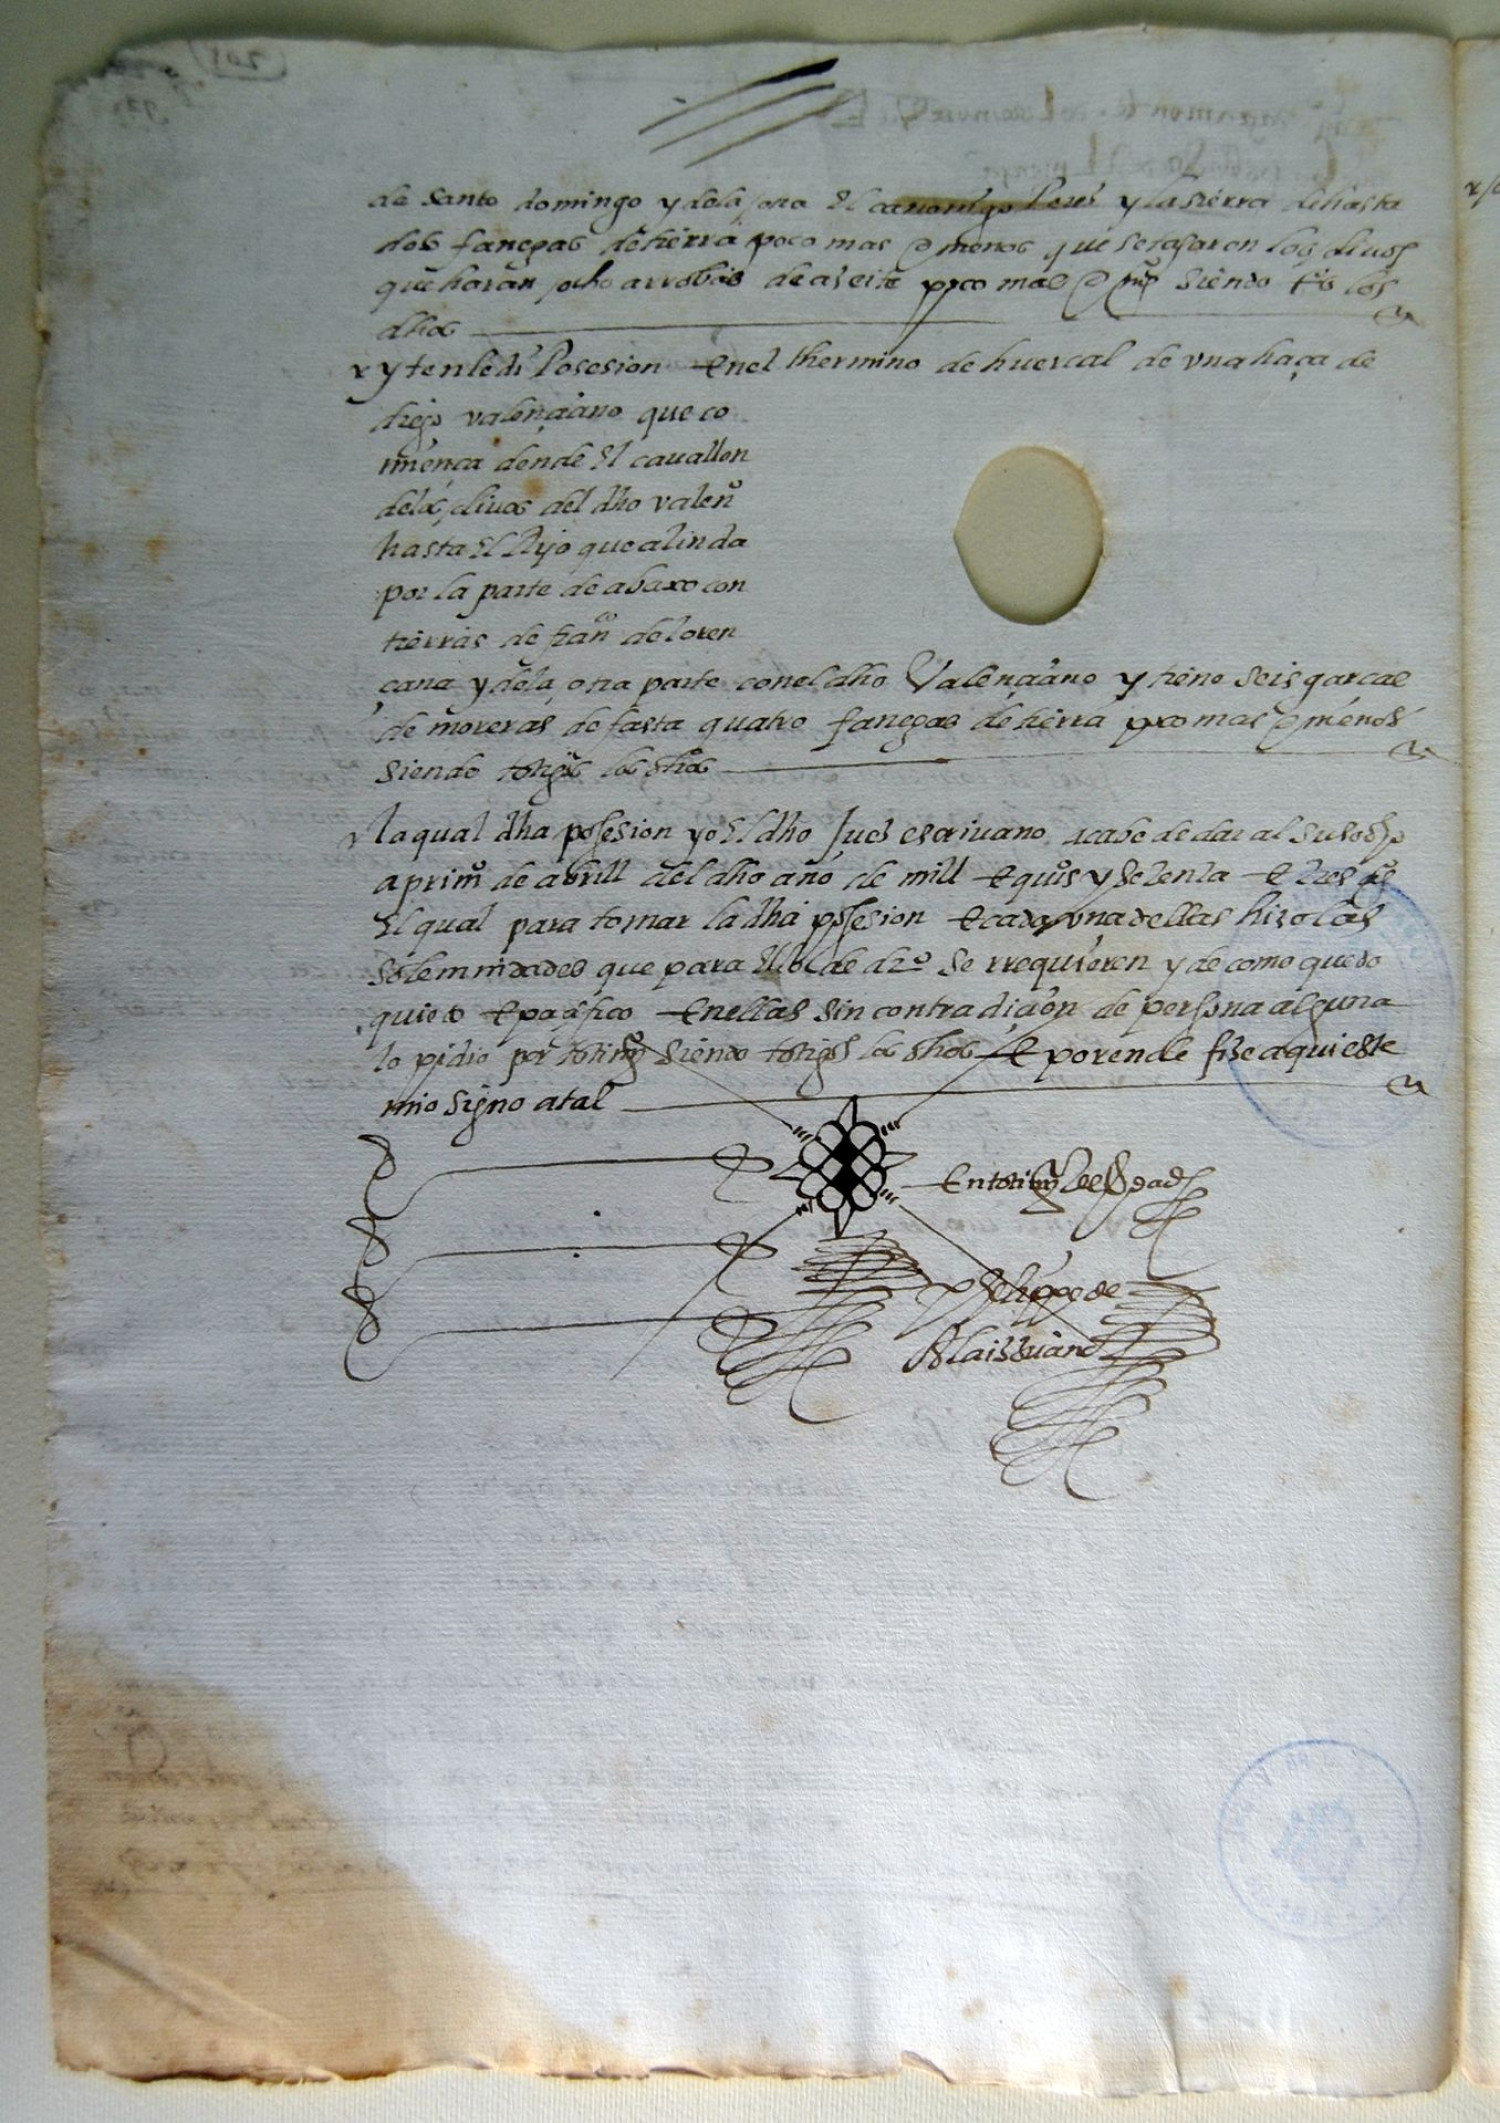 de santo domingo y dela otra El canonigo Perez y la tierra de hasta
dos fanegas de tierra poco mas o menos que se tasaron los olivos
que haran ocho arrobas de aseite poco mas o mos siendo tos los
dhos
yten le di Posesion En el thermino de huercal de vna haça de
diego valençiano que co
miença dende El cauallon
delos oliuos del dho valeno
hasta El Rijo que alinda
por la parte de abaxo con
tierras de franco de loren
çana y dela otra parte con el dho Valençiano y tiene seis garcas
de moreras de fasta quatro fanegas de tierra poco mas o menos
siendo totigos los dhos
la qual dha posesion yo El dho Juez escriuano acabe de dar al susodho
a primo de abrill del dho año de mill E quis y setenta E tres as
El qual para tomar la dha posesion E cada vna dellas hizo las
solemnidades que para El de dro se rrequieren y de como quedo
quieto E paçifico En ellas sin contradiçion de persona alguna
lo pidio por totimo siendo totigos los dhos E por ende fize aqui este
mio signo a tal
En totimo de verdad
phelippe de